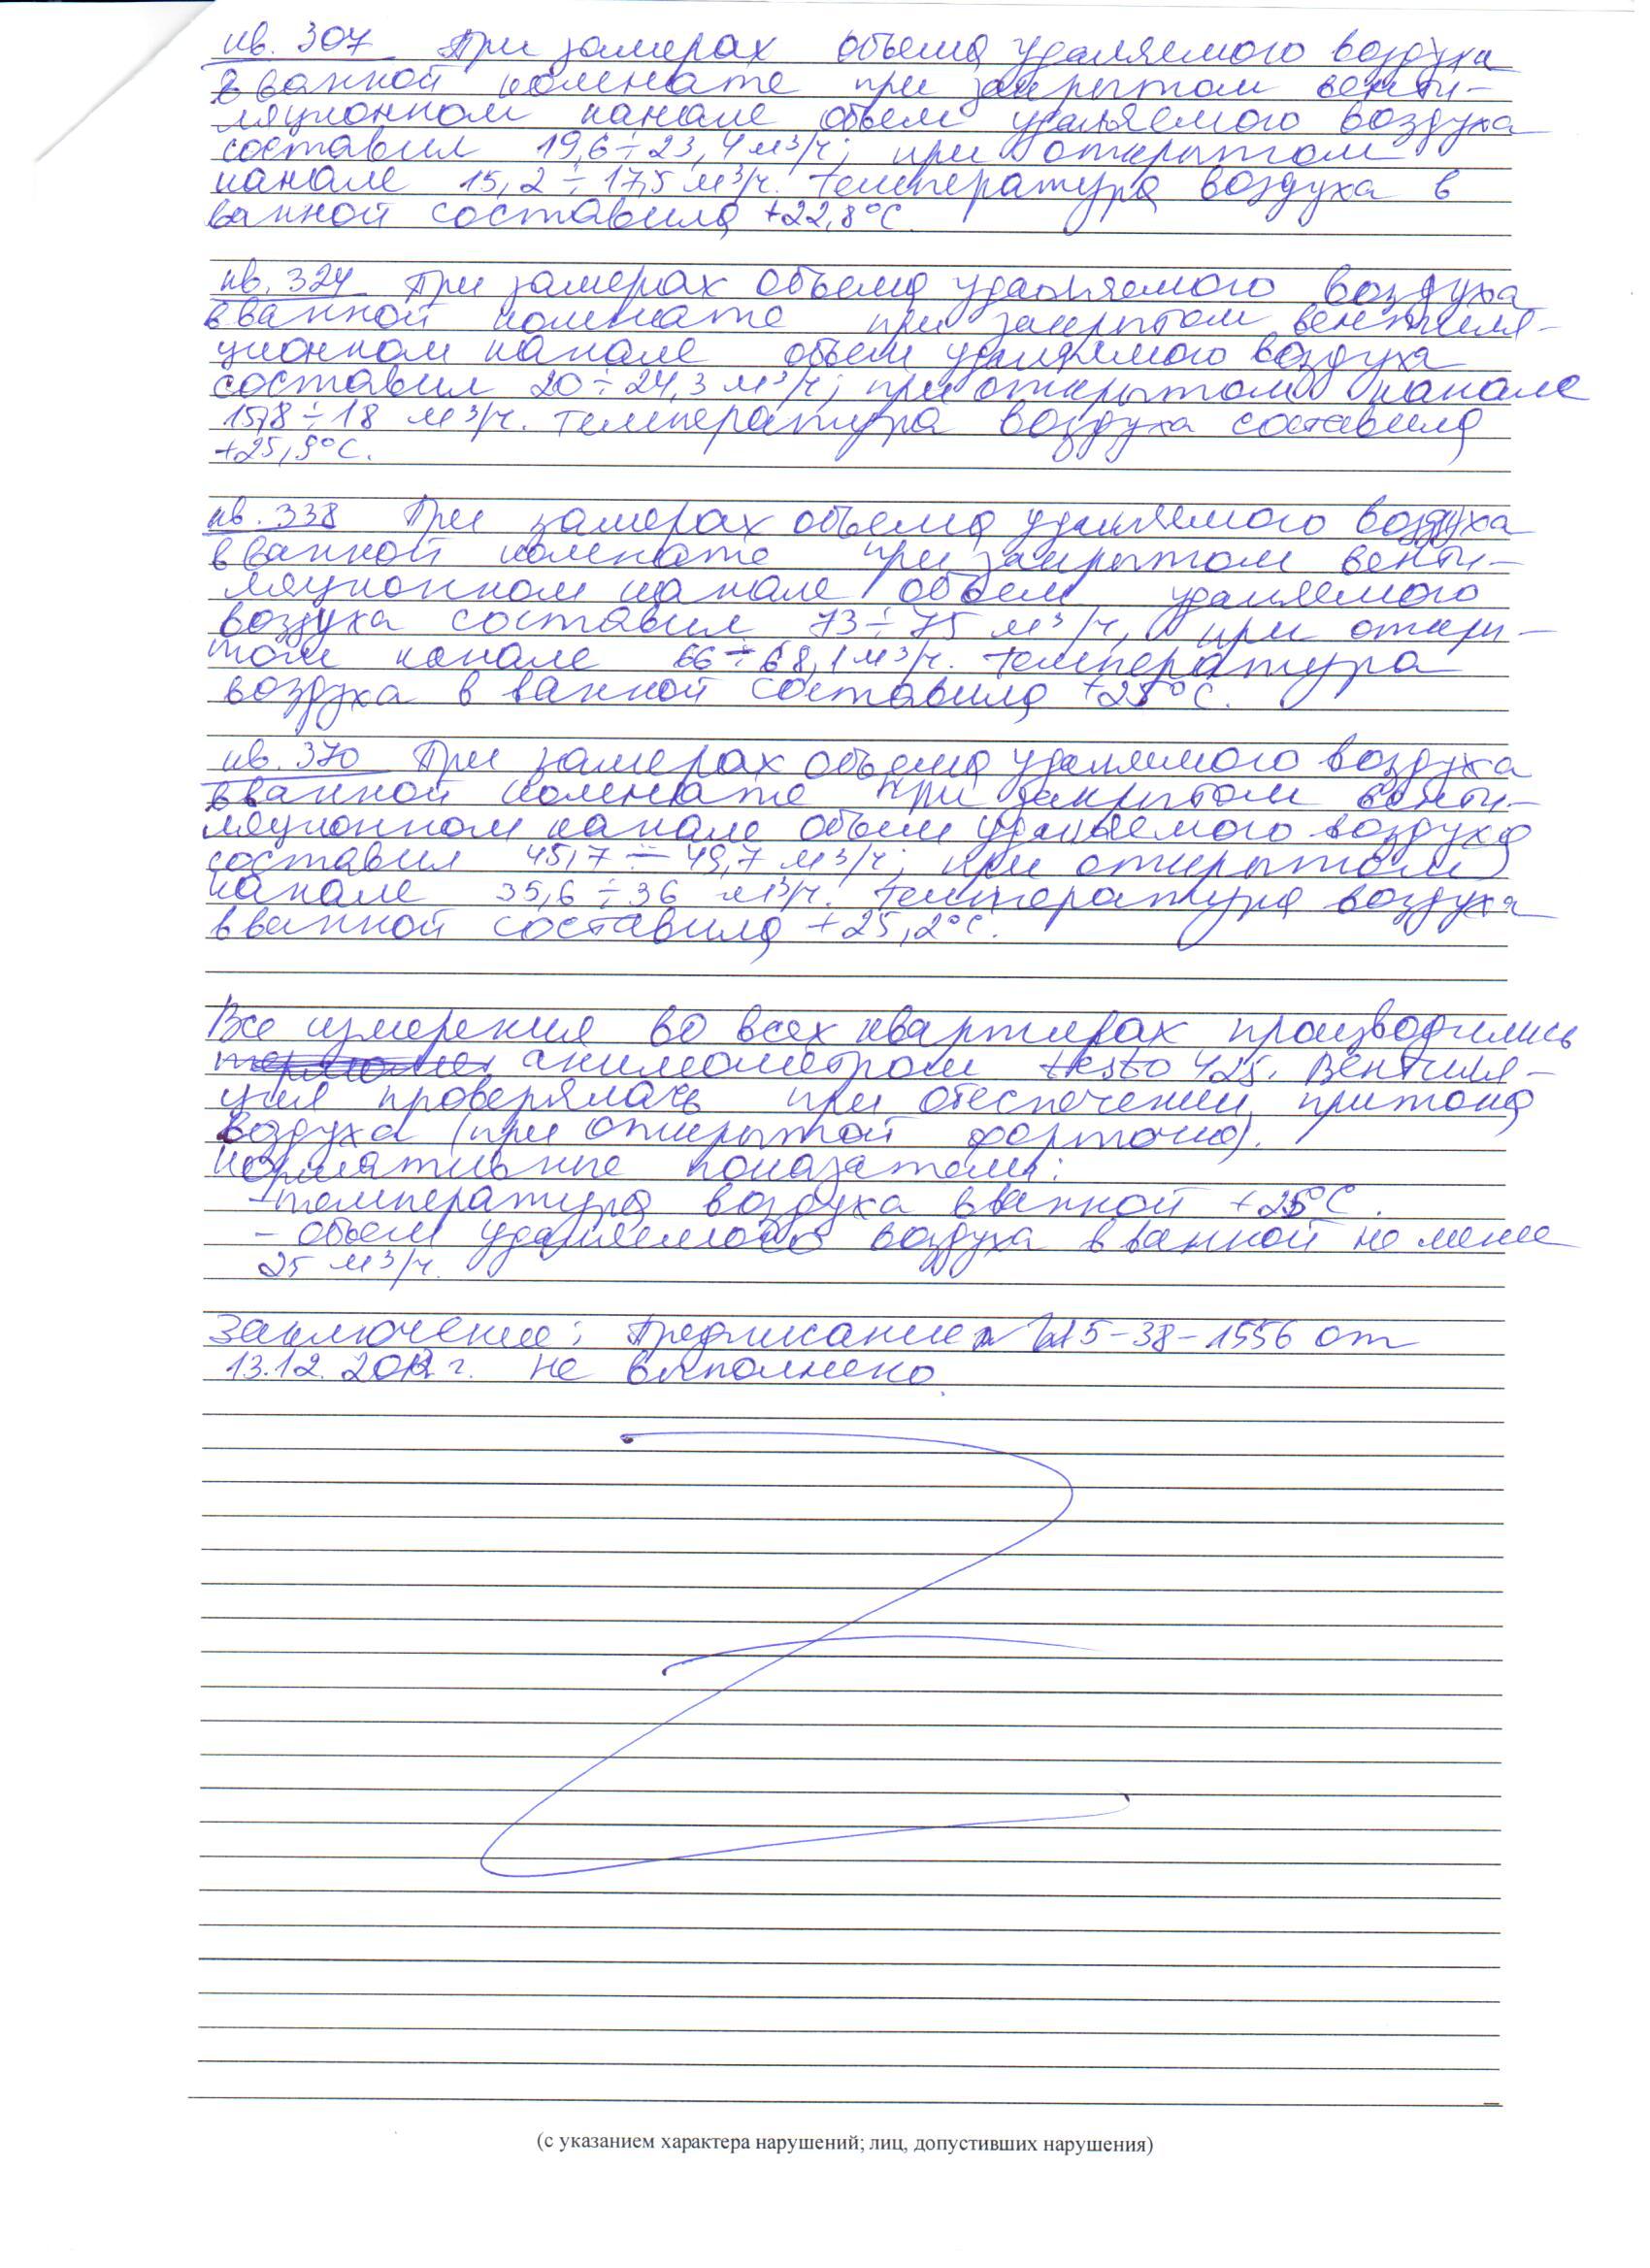 кв. 307 При замерах объема удаляемого воздуха
в ванной комнате при закрытом венти-
ляционном канале объем удаляемого воздуха
составил 19,6÷23,4 м³/ч; при открытом
канале 15,2÷17,5 м³/ч. температура воздуха в
ванной составила +22,8°С.
кв. 324 При замерах объема удаляемого воздуха
в ванной комнате при закрытом вентиля-
ционном канале объем удаляемого воздуха
составил 20÷24,3 м³/ч; при открытом канале
15,8÷18 м³/ч. температура воздуха составила
+25,9°С.
кв. 338 При замерах объема удаляемого воздуха
в ванной комнате при закрытом венти-
ляционном канале объем удаляемого
воздуха составил 73÷75 м³/ч, при откры-
том канале 66÷68,1 м³/ч. температура
воздуха в ванной составила +25°С.
кв. 370 При замерах объема удаляемого воздуха
в ванной комнате при закрытом венти-
ляционном канале объем удаляемого воздуха
составил 45,7÷49,7 м³/ч; при открытом
канале 35,6÷36 м³/ч. температура воздуха
в ванной составила +25,2°С.
Все измерения во всех квартирах производились
анимометром testo 425. Вентиля-
ция проверялась при обеспечении притока
воздуха (при открытой форточке).
Нормативные показатели:
-температура воздуха в ванной +25°С.
- объем удаляемого воздуха в ванной не менее
25 м³/ч.
Заключение: Предписание 15-38-1556 от
13.12.2012 г. не выполнено.
(с указанием характера нарушений; лиц, допустивших нарушения)